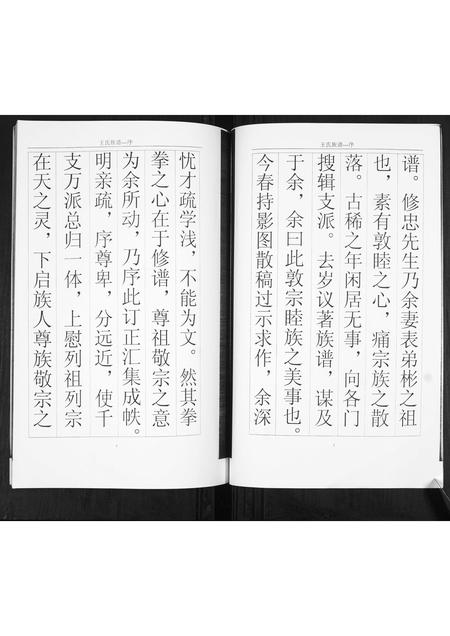 王氏族谱—序
谱。修忠先生乃余妻表弟彬之祖
也，素有敦睦之心，痛宗族之散
落。古稀之年闲居无事，向各门
搜辑支派。去岁议著族谱，谋及
于余，余曰此敦宗睦族之美事也。
今春持影图散稿过示求作，余深
王氏族谱—序
忧才疏学浅，不能为文。然其拳
拳之心在于修谱，尊祖敬宗之意
为余所动，乃序此订正汇集成帙。
明亲疏，序尊卑，分远近，使千
支万派总归一体，上慰列祖列宗
在天之灵，下启族人尊族敬宗之